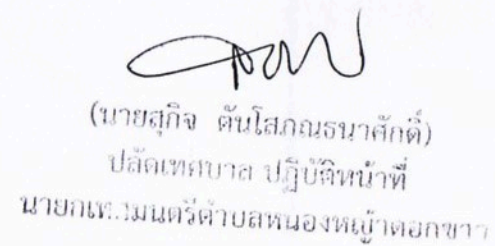 (นายสุกิจ ตันโสภณธนาศักดิ์)
ปลัดเทศบาล ปฏิบัติหน้าที่
นายกเทศมนตรีตำบลหนองหญ้าดอกขาว